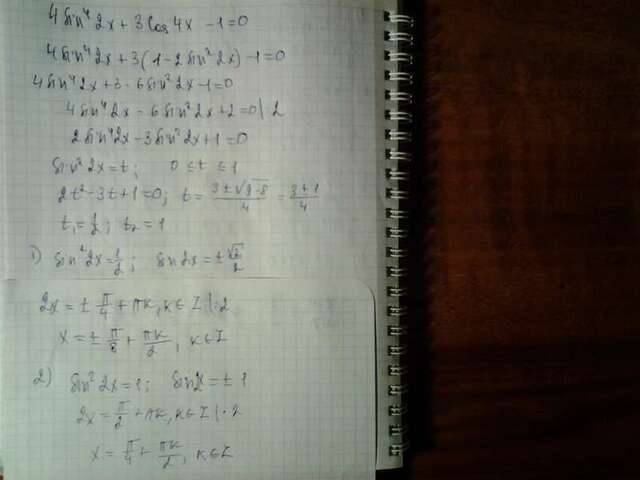 4 sin⁴2x + 3 cos 4x - 1 = 0
4 sin⁴2x + 3(1 - 2 sin²2x) - 1 = 0
4 sin⁴2x + 3 - 6 sin²2x - 1 = 0
4 sin⁴2x - 6 sin²2x + 2 = 0 |:2
2 sin⁴2x - 3 sin²2x + 1 = 0
sin²2x = t; 0 ≤ t ≤ 1
2t² - 3t + 1 = 0; t = (3 ± √(9-8))/4 = (3 ± 1)/4
t₁ = 1/2; t₂ = 1
1) sin²2x = 1/2; sin 2x = ± √2/2
2x = ± π/4 + πk, k ∈ Z |:2
x = ± π/8 + πk/2, k ∈ Z
2) sin²2x = 1; sin 2x = ± 1
2x = π/2 + πk, k ∈ Z |:2
x = π/4 + πk/2, k ∈ Z